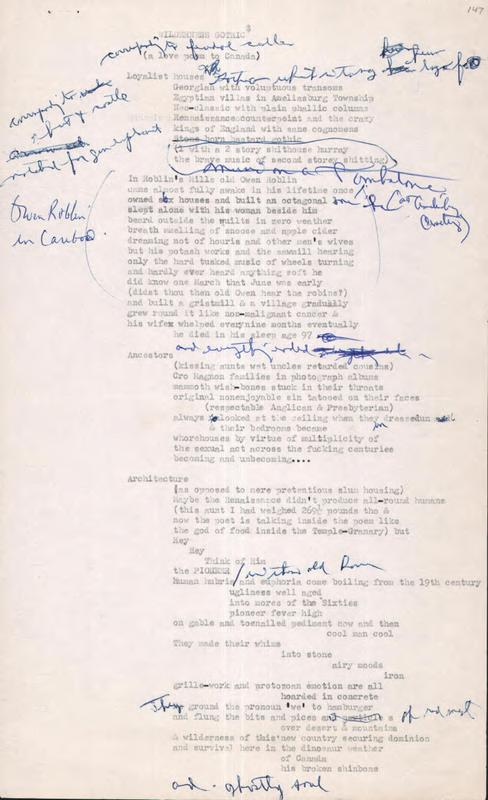 147
WILDERNESS GOTHIC
(a love poem to Canada)
Loyalist houses
Georgian with voluptuous transoms
Egyptian villas in Ameliasburg Township
Neo-classic with plain phallic columns
Renaissance counterpoint and the crazy
kings of England with sane cognomens
Stone barn bastard gothic
(1 with a 2 story shithouse hurray
the brave music of second storey shitting)
on a Tombstone
In Roblin's Mills old Owen Roblin
came almost fully awake in his lifetime once
owned six houses and built an octagonal one
slept alone with his woman beside him
beard outside the quilts in zero weather
breath smelling of snoose and apple cider
dreaming not of houris and other men's wives
but his potash works and the sawmill hearing
only the hard tusked music of wheels turning
and hardly ever heard anything soft he
did know one March that June was early
(didst thou then old Owen hear the robins?)
and built a gristmill & a village gradually
grew round it like non-malignant cancer &
his wifex whelped everynine months eventually
he died in his sleep age 97
Owen Roblin
in Cariboo
and everything ended
Ancestors
(kissing aunts wet uncles retarded cousins)
Cro Magnon families in photograph albums
mammoth wish-bones stuck in their throats
original nonenjoyable sin tatooed on their faces
(respectable Anglican & Presbyterian)
always looked at the ceiling when they dressedun
& their bedrooms became
in
whorehouses by virtue of multiplicity of
the sexual act across the fucking centuries
becoming and unbecoming....
Architecture
(as opposed to mere pretentious slum housing)
Maybe the Renaissance didn't produce all-round humans
(this aunt I had weighed 269½ pounds tho &
now the poet is talking inside the poem like
the god of food inside the Temple-Granary) but
Hey
Hey
Think of Him
the PIONEER
Human hubris and euphoria come boiling from the 19th century
ugliness well aged
into mores of the Sixties
pioneer fever high
on gable and toenailed pediment now and then
cool man cool
They made their whims
into stone
airy moods
iron
grille-work and protozoan emotion are all
hoarded in concrete
They ground the pronoun 'we' to hamburger
and flung the bits and pices
over desert & mountains
& wilderness of this new country securing dominion
and survival here in the dinosaur weather
of Canada
his broken shinbone
and ghostly soul